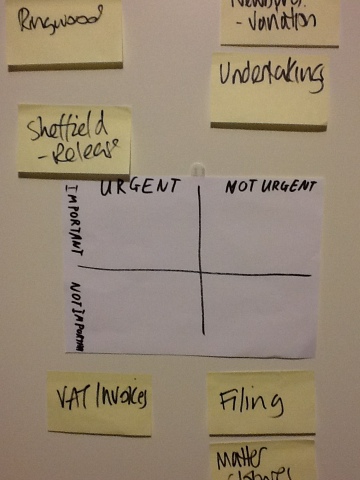 Ringwood
- Variation
Undertaking
Sheffield
- Release
URGENT
NOT URGENT
IMPORTANT
NOT IMPORTANT
VAT Invoices
Filing
Matter
closures